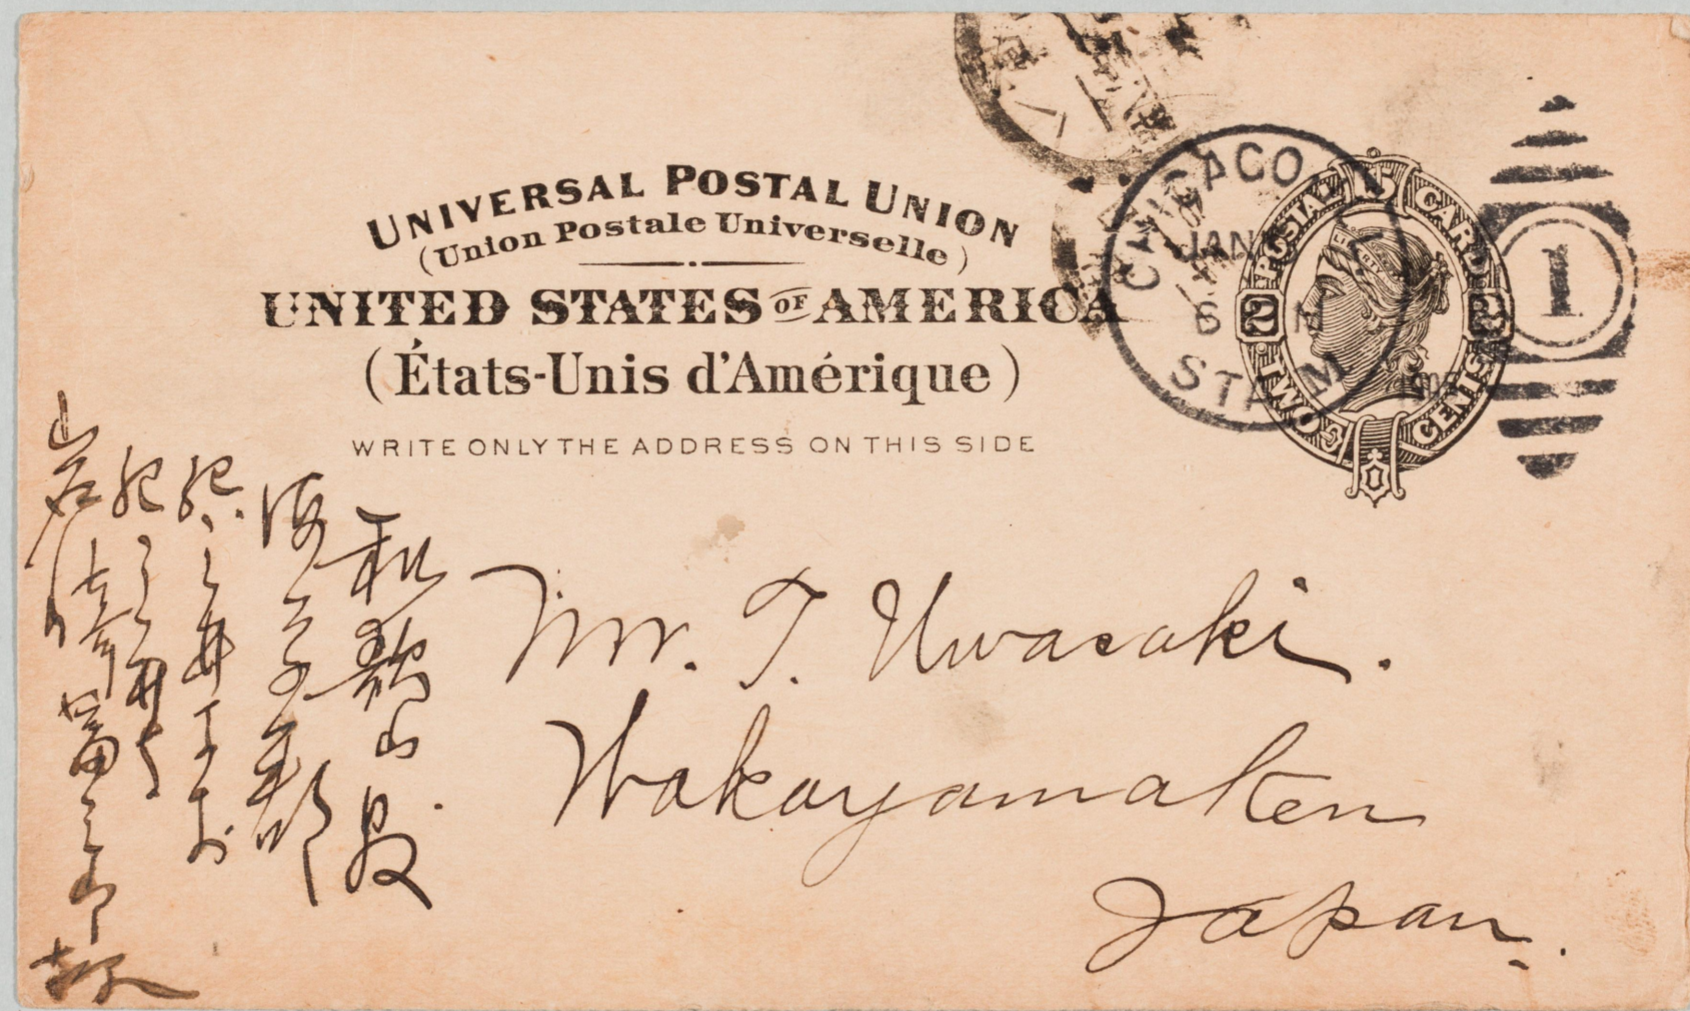 UNIVERSAL POSTAL UNION
(Union Postale Universelle)
UNITED STATES OF AMERICA
(États-Unis d'Amérique)
WRITE ONLY THE ADDRESS ON THIS SIDE
CHICAGO
JAN
6
STA. M
1
POSTAL CARD
2 2
TWO CENTS
LIBERTY
Mr. T. Uwasaki.
Wakayamaken
Japan.
和歌山県
海草郡
紀三井寺村
紀三井寺
岩崎富三郎様